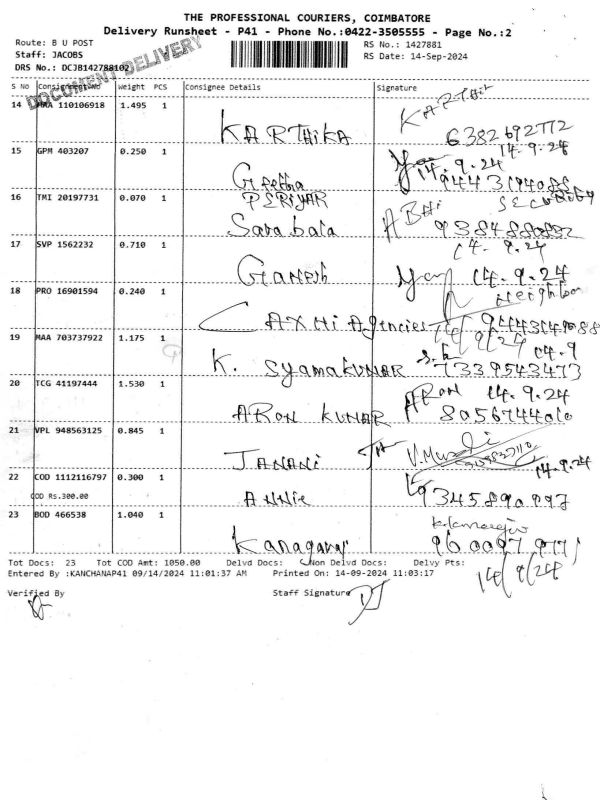 THE PROFESSIONAL COURIERS, COIMBATORE
Delivery Runsheet - P41 - Phone No.:0422-3505555 - Page No.:2
Route: B U POST
RS No.: 1427881
Staff: JACOBS
RS Date: 14-Sep-2024
DRS No.: DCJB142788102
DOCUMENT DELIVERY
S No Consignment No Weight PCS Consignee Details Signature
14 MAA 110106918 1.495 1
KARTHIKA KARTHIK 6382692772
14.9.24
15 GPM 403207 0.250 1
Geetha 14.9.24
16 TMI 20197731 0.070 1
PERIYAR SECURITY
Sarabala ABHI
14.9.24
17 SVP 1562232 0.710 1
Ganesh 14.9.24
18 PRO 16901594 0.240 1
Neighbor
Laxmi Agencies 14/9/24
19 MAA 703737922 1.175 1
14.9
K. Syamakumar S.K 7339543473
20 TCG 41197444 1.530 1
ARON 14.9.24
ARON KUMAR 8056744010
21 VPL 948563125 0.845 1
JANANI V.Murali
14.9.24
22 COD 1112116797 0.300 1
COD Rs.300.00
ANNIE 9345890997
23 BOD 466538 1.040 1
Kanagaraj
Tot Docs: 23 Tot COD Amt: 1050.00 Delvd Docs: Non Delvd Docs: Delvy Pts:
14/9/24
Entered By :KANCHANAP41 09/14/2024 11:01:37 AM Printed On: 14-09-2024 11:03:17
Verified By Staff Signature